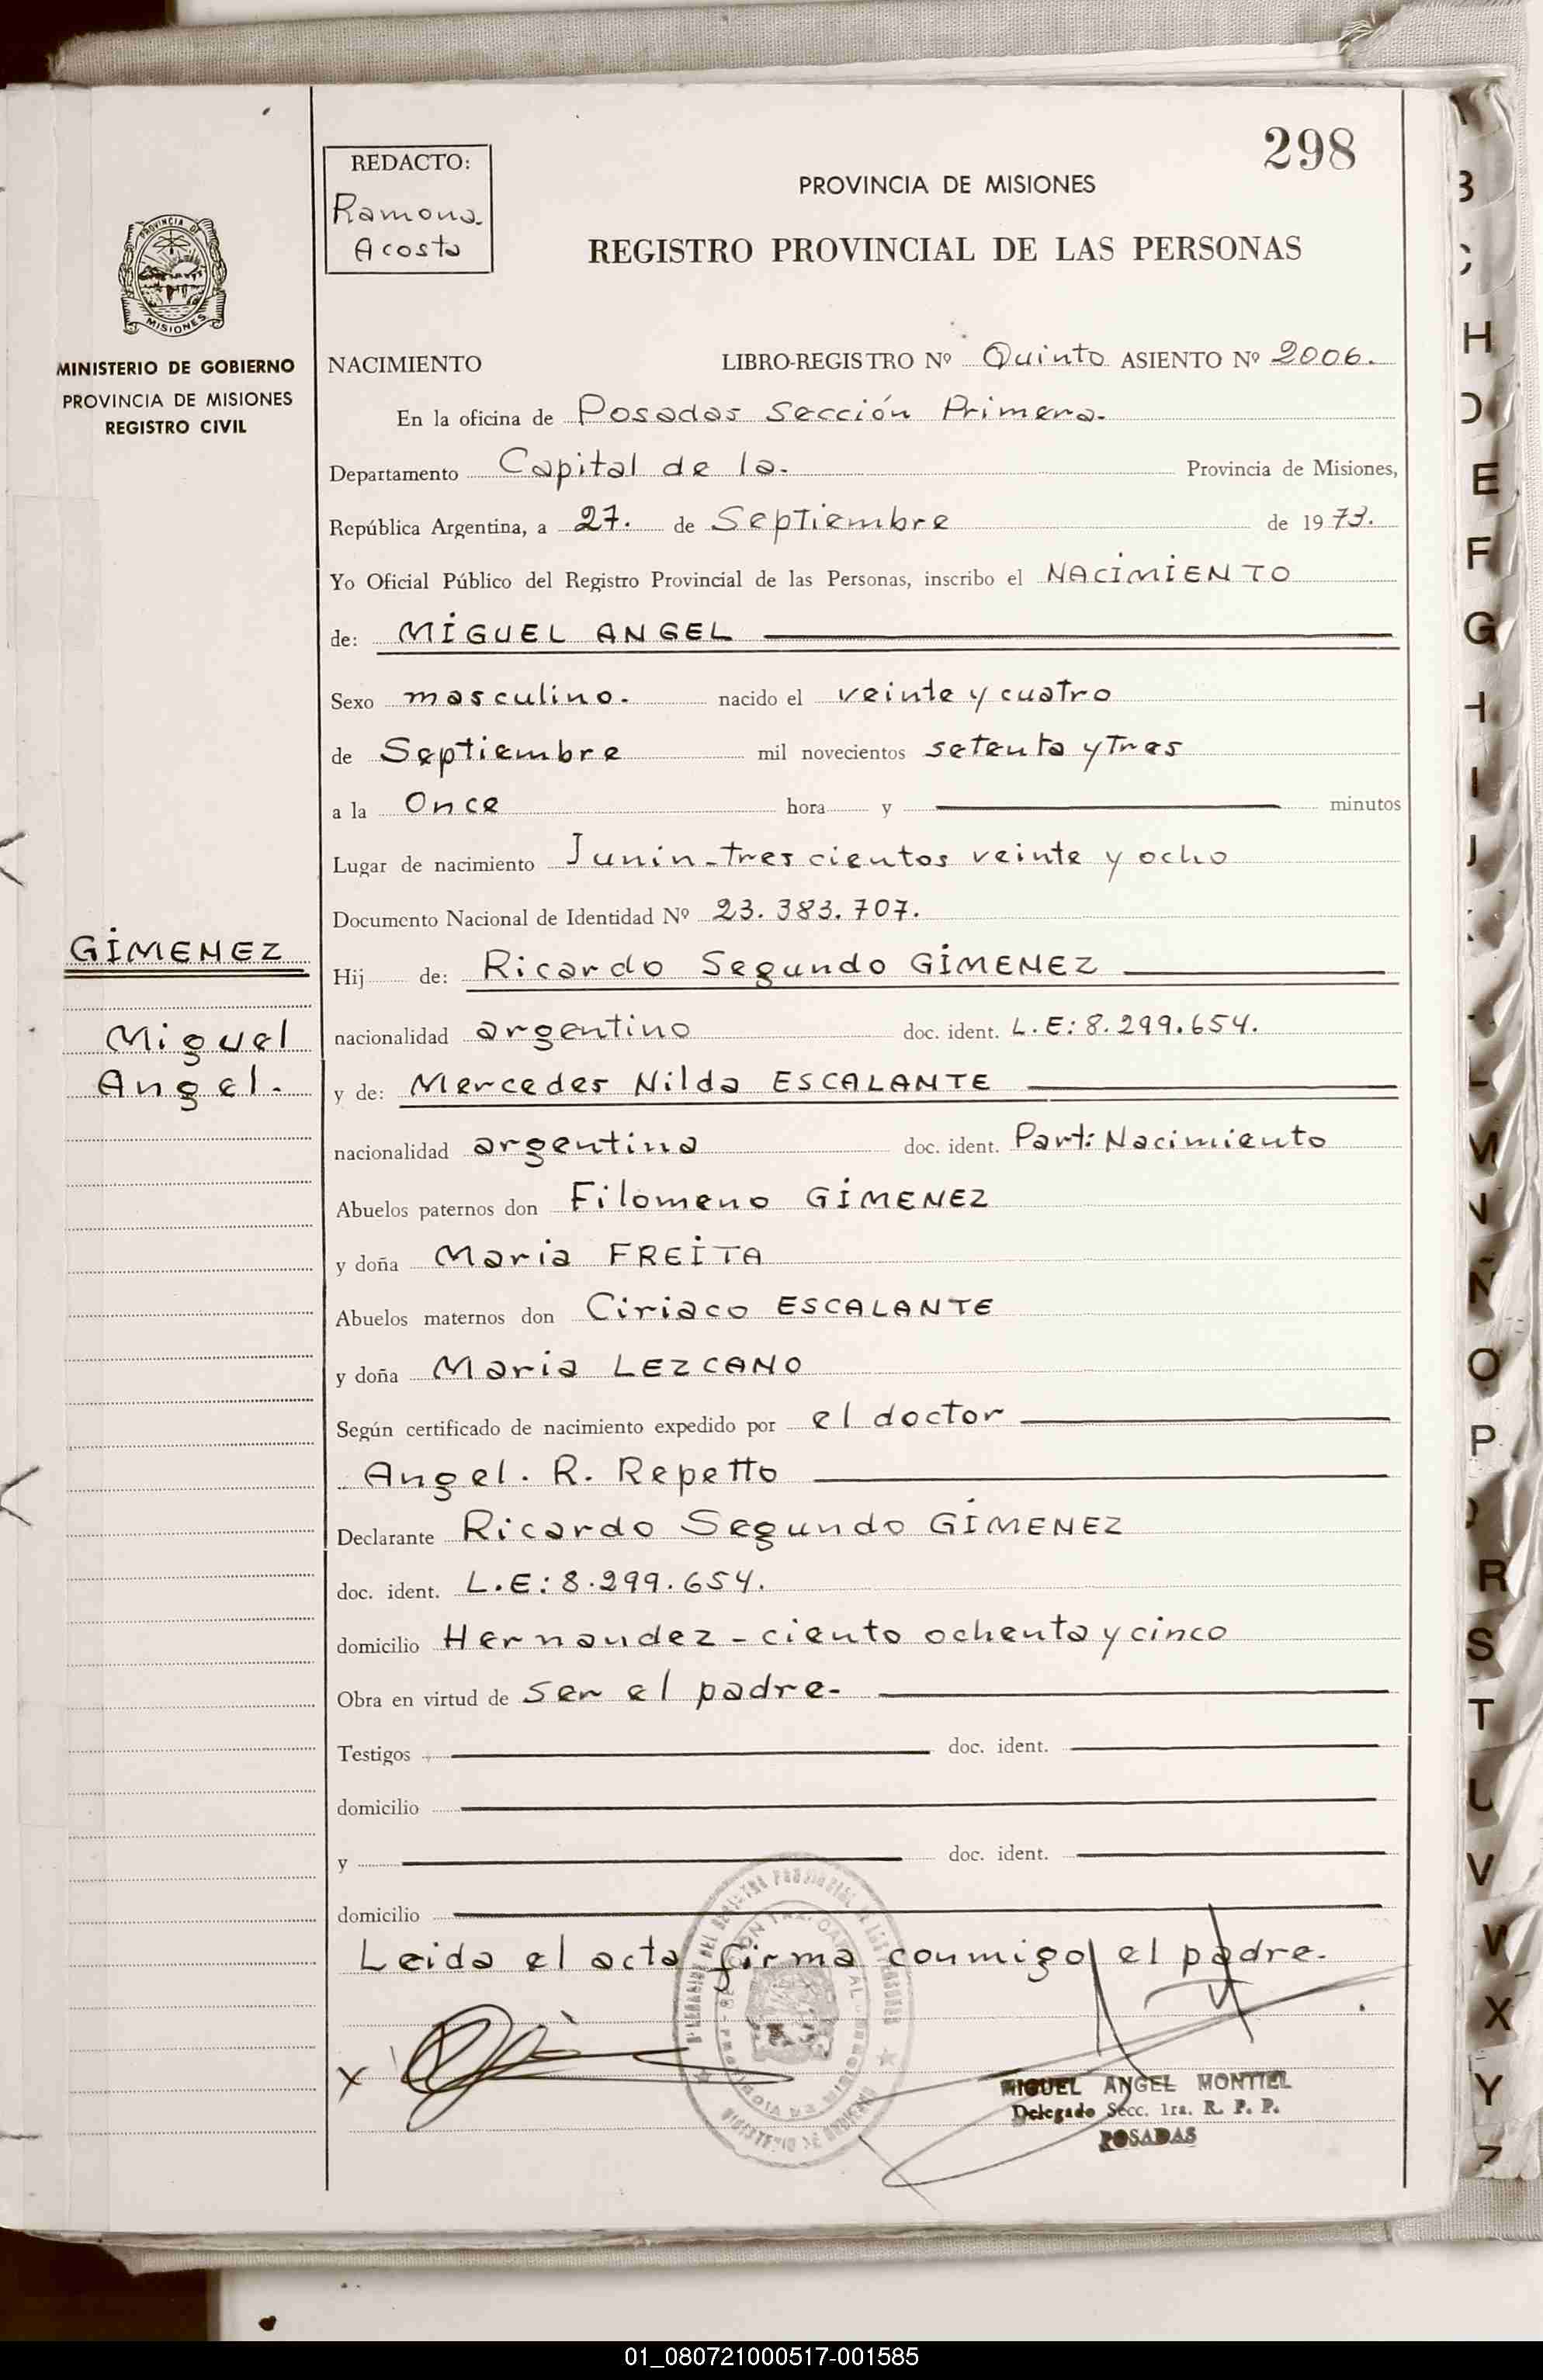 298
REDACTO:
Ramona
Acosta
PROVINCIA DE MISIONES
REGISTRO PROVINCIAL DE LAS PERSONAS
PROVINCIA DE
MISIONES
MINISTERIO DE GOBIERNO
PROVINCIA DE MISIONES
REGISTRO CIVIL
NACIMIENTO LIBRO-REGISTRO Nº Quinto ASIENTO Nº 2006.
En la oficina de Posadas Sección Primera.
Departamento Capital de la. Provincia de Misiones,
República Argentina, a 27. de Septiembre de 1973.
Yo Oficial Público del Registro Provincial de las Personas, inscribo el NACIMIENTO
de: MIGUEL ANGEL
Sexo masculino. nacido el veinte y cuatro
de Septiembre mil novecientos setenta y tres
a la Once hora y minutos
Lugar de nacimiento Junin-trescientos veinte y ocho
Documento Nacional de Identidad Nº 23.383.707.
GIMENEZ
Miguel
Angel.
Hij de: Ricardo Segundo GIMENEZ
nacionalidad argentino doc. ident. L.E: 8.299.654.
y de: Mercedes Nilda ESCALANTE
nacionalidad argentina doc. ident. Part: Nacimiento
Abuelos paternos don Filomeno GIMENEZ
y doña Maria FREITA
Abuelos maternos don Ciriaco ESCALANTE
y doña Maria LEZCANO
Según certificado de nacimiento expedido por el doctor
Angel. R. Repetto
Declarante Ricardo Segundo GIMENEZ
doc. ident. L.E: 8.299.654.
domicilio Hernandez - ciento ochenta y cinco
Obra en virtud de ser el padre-
Testigos doc. ident.
domicilio
y doc. ident.
domicilio
Leida el acta firma conmigo el padre.
X
MIGUEL ANGEL MONTIEL
Delegado Secc. 1ra. R. P. P.
POSADAS
B
C
H
D
E
F
G
H
I
J
L
M
N
Ñ
O
P
R
S
T
U
V
W
X
Y
Z
01_080721000517-001585